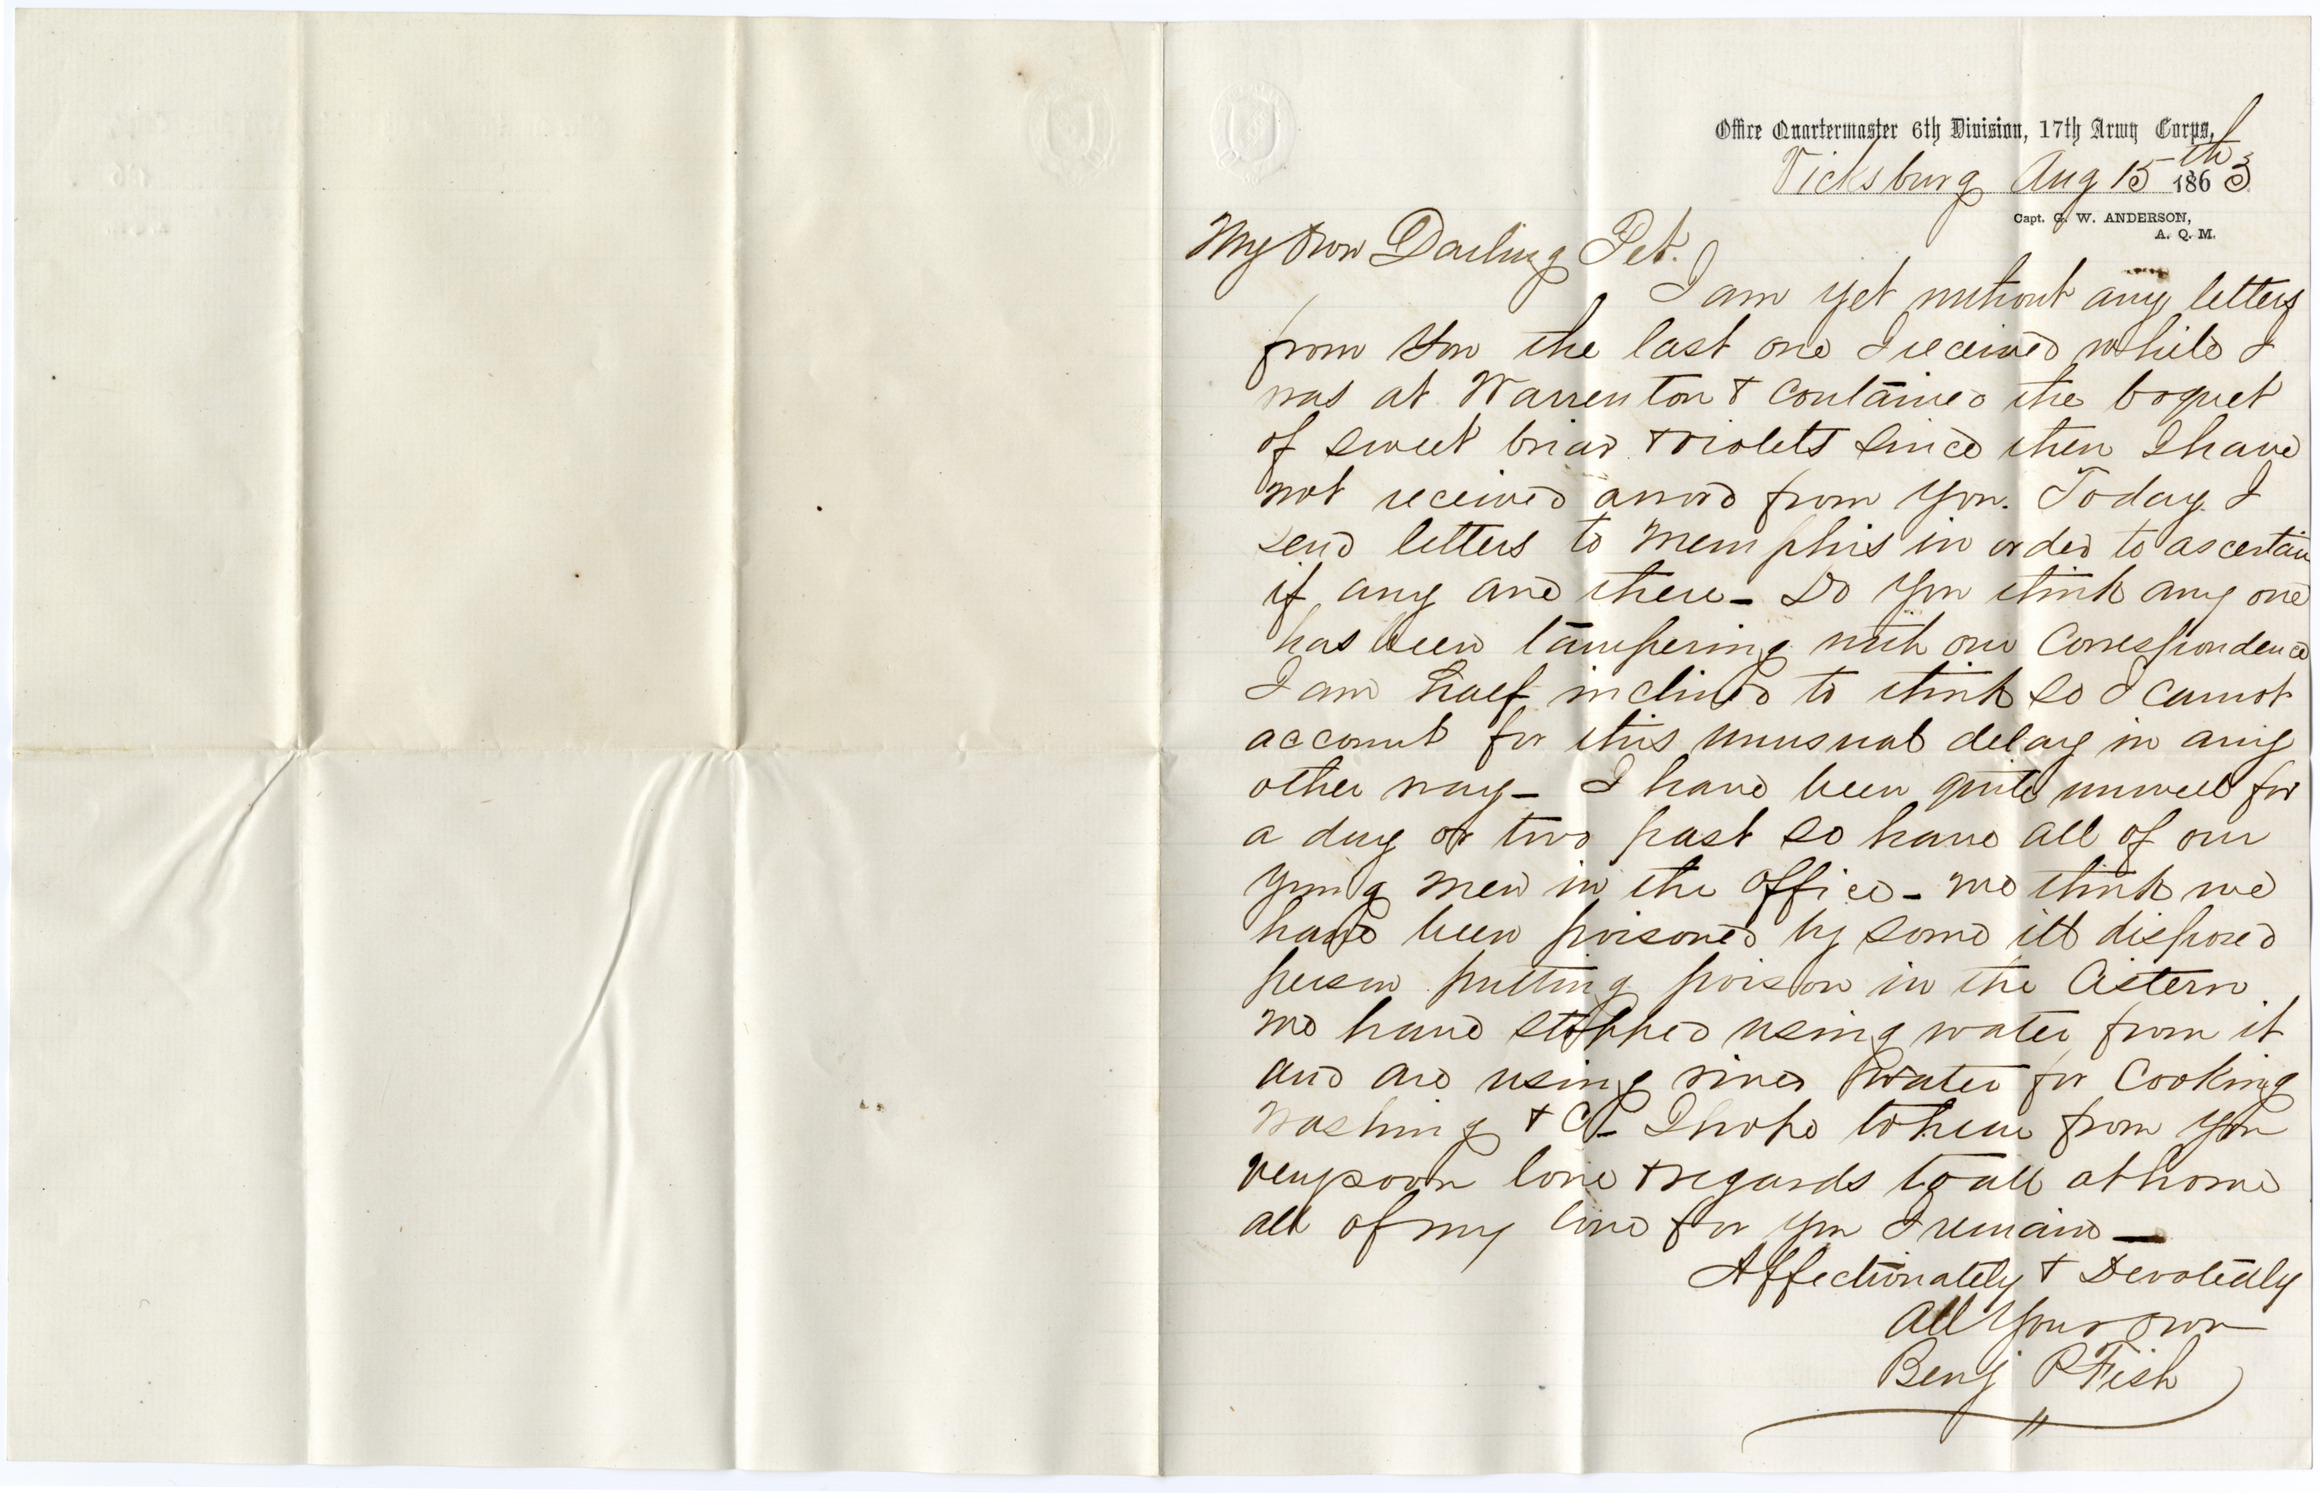 Office Quartermaster 6th Division, 17th Army Corps,
Vicksburg Aug 15th 1863
Capt. G. W. ANDERSON,
A. Q. M.
My Own Darling Pet.
I am yet without any letters
from you the last one I received while I
was at Warrenton & contained the boquet
of sweet briar & violets since then I have
not received a word from you. Today I
send letters to Memphis in order to ascertain
if any are there - Do you think any one
has been tampering with our Correspondence
I am half inclined to think so I cannot
account for this unusual delay in any
other way - I have been quite unwell for
a day or two past so have all of our
young men in the office - we think we
have been poisoned by some ill disposed
person putting poison in the Cistern
we have stopped using water from it
and are using river water for Cooking
Washing & C - I hope to hear from you
very soon love & regards to all at home
all of my love for you I remain -
Affectionately & Devotedly
All Your own
Benj P Fish